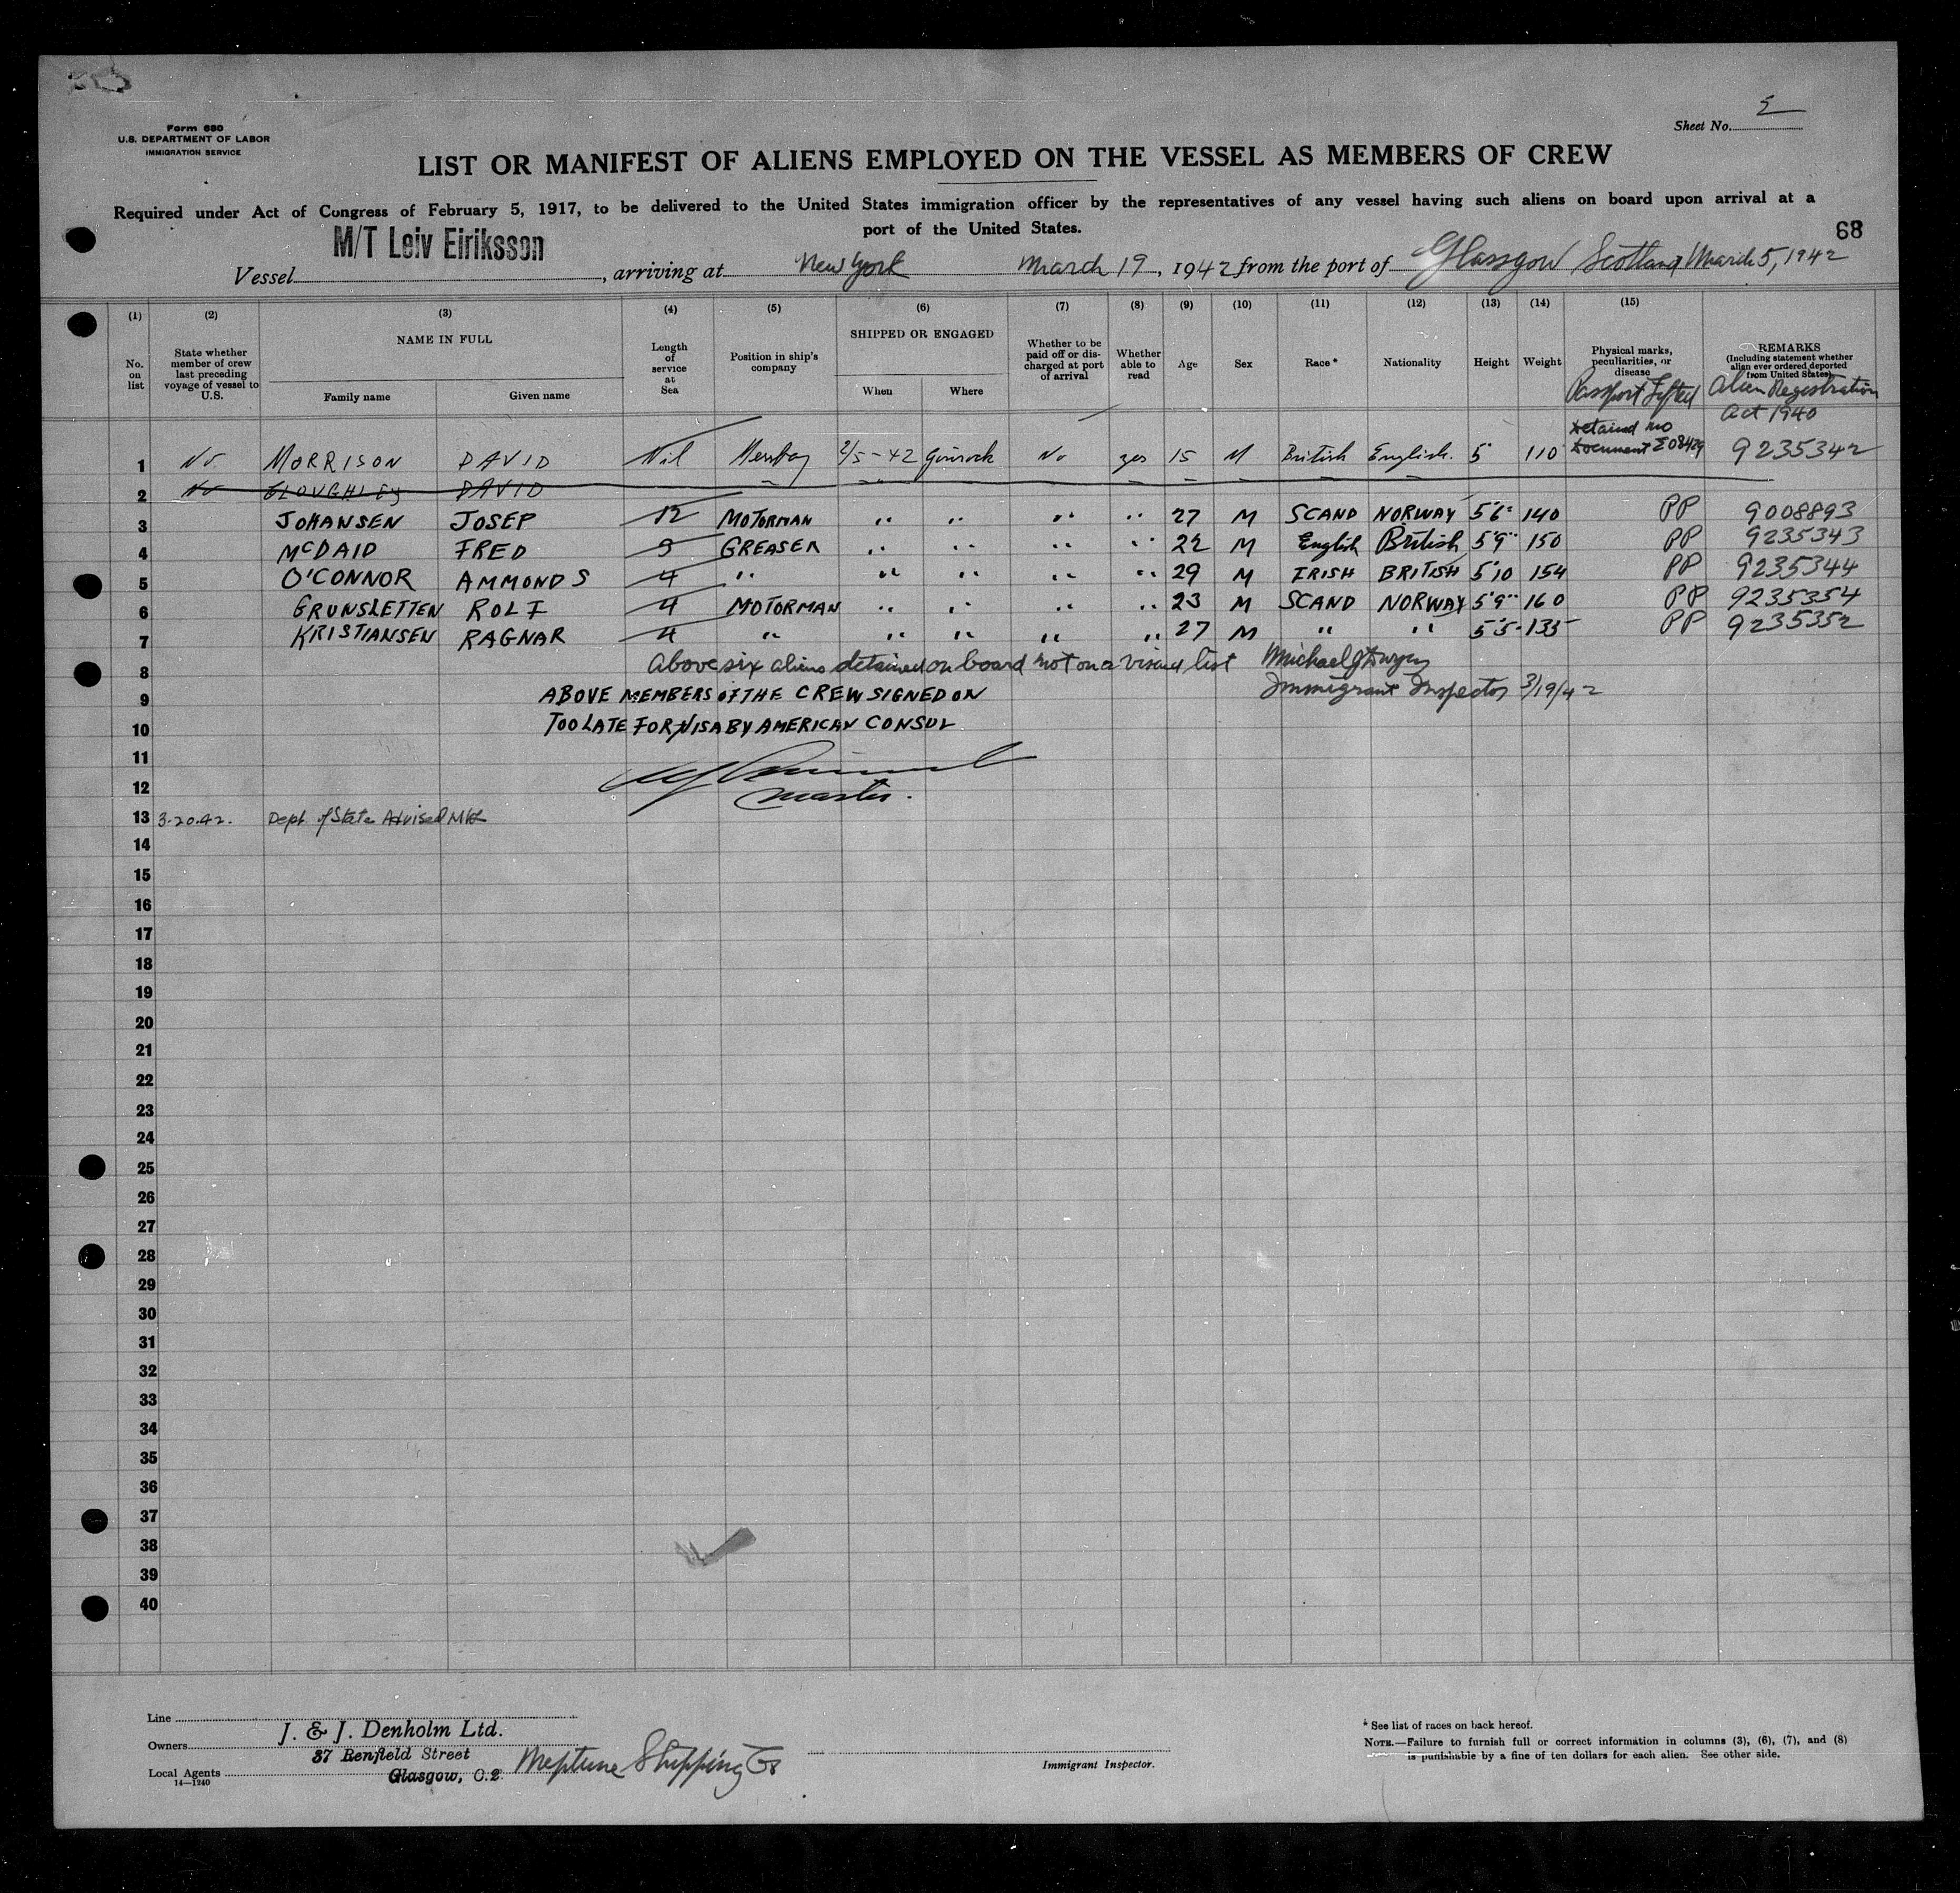 Form 680
U.S. DEPARTMENT OF LABOR
IMMIGRATION SERVICE
Sheet No. 5
LIST OR MANIFEST OF ALIENS EMPLOYED ON THE VESSEL AS MEMBERS OF CREW
Required under Act of Congress of February 5, 1917, to be delivered to the United States immigration officer by the representatives of any vessel having such aliens on board upon arrival at a
port of the United States.
68
Vessel M/T Leiv Eiriksson, arriving at New York March 19, 1942 from the port of Glassgow Scotland March 5, 1942
(1) (2) (3) (4) (5) (6) (7) (8) (9) (10) (11) (12) (13) (14) (15)
No. on list
State whether member of crew last preceding voyage of vessel to U.S.
NAME IN FULL
Family name Given name
Length of service at Sea
Position in ship's company
SHIPPED OR ENGAGED
When Where
Whether to be paid off or discharged at port of arrival
Whether able to read
Age
Sex
Race*
Nationality
Height
Weight
Physical marks, peculiarities, or disease
Passport Lifted
REMARKS
(Including statement whether alien ever ordered deported from United States)
Alien Registration
Act 1940
1 No MORRISON DAVID Nil Messboy 2/5-42 No yes 15 M British English. 5 110 Detained no Document 9235342
2 No CLOUGHLEY DAVID
3 JOHANSEN JOSEP 12 MOTORMAN " " " " 27 M SCAND NORWAY 5'6" 140 PP 9008893
4 McDAID FRED 3 GREASER " " " " 22 M English British 5'9" 150 PP 9235343
5 O'CONNOR AMMOND S 4 " " " " " 29 M IRISH BRITISH 5'10 154 PP 9235344
6 GRUNSLETTEN ROLF 4 MOTORMAN " " " " 23 M SCAND NORWAY 5'9" 160 PP 9235354
7 KRISTIANSEN RAGNAR 4 " " " " " 27 M " " 5'5" 135 PP 9235352
8 Above six aliens detained on board not on a visaed list Michael J Dwyer
9 ABOVE MEMBERS OF THE CREW SIGNED ON Immigrant Inspector 3/19/42
10 TOO LATE FOR VISA BY AMERICAN CONSUL
11
12 Master.
13 3-20-42. Dept of State Advised
14
15
16
17
18
19
20
21
22
23
24
25
26
27
28
29
30
31
32
33
34
35
36
37
38
39
40
Line
Owners J. & J. Denholm Ltd.
37 Renfield Street
Local Agents Glasgow, C.2. Neptune Shipping Co
14—1240
Immigrant Inspector.
* See list of races on back hereof.
NOTE.—Failure to furnish full or correct information in columns (3), (6), (7), and (8)
is punishable by a fine of ten dollars for each alien. See other side.